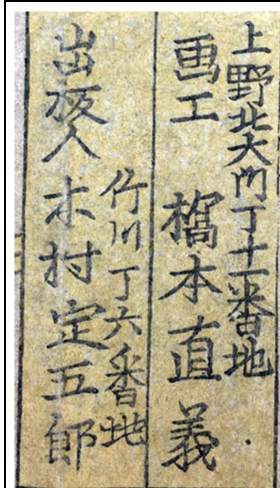 上野北大門丁十一番地
画工 橋本直義
竹川丁六番地
出板人 木村定五郎